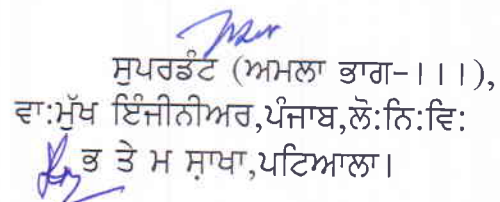 ਸੁਪਰਡੰਟ (ਅਮਲਾ ਭਾਗ-।।।),
ਵਾ:ਮੁੱਖ ਇੰਜੀਨੀਅਰ,ਪੰਜਾਬ,ਲੋ:ਨਿ:ਵਿ:
ਭ ਤੇ ਮ ਸ਼ਾਖਾ,ਪਟਿਆਲਾ।